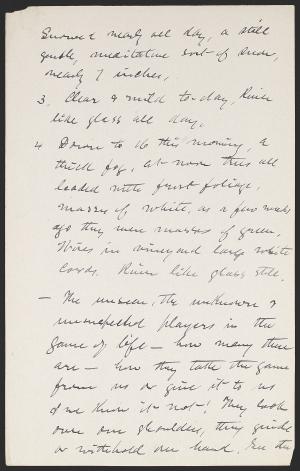 Snowed nearly all day, a still
gentle, meditative sort of snow,
nearly 7 inches.
3. Clear & mild to-day, River
like glass all day.
4 Down to 16 this morning, a
thick fog, at noon trees all
loaded with frost foliage,
masses of white, as a few weeks
ago they were masses of green.
Wires in vineyard large white
cords. River like glass still.
— The unseen, the unknown &
unsuspected players in the
game of life — how many there
are — how they take the game
from us or give it to us
& we know it not! They look
over our shoulders, they guide
or withhold our hand. In the